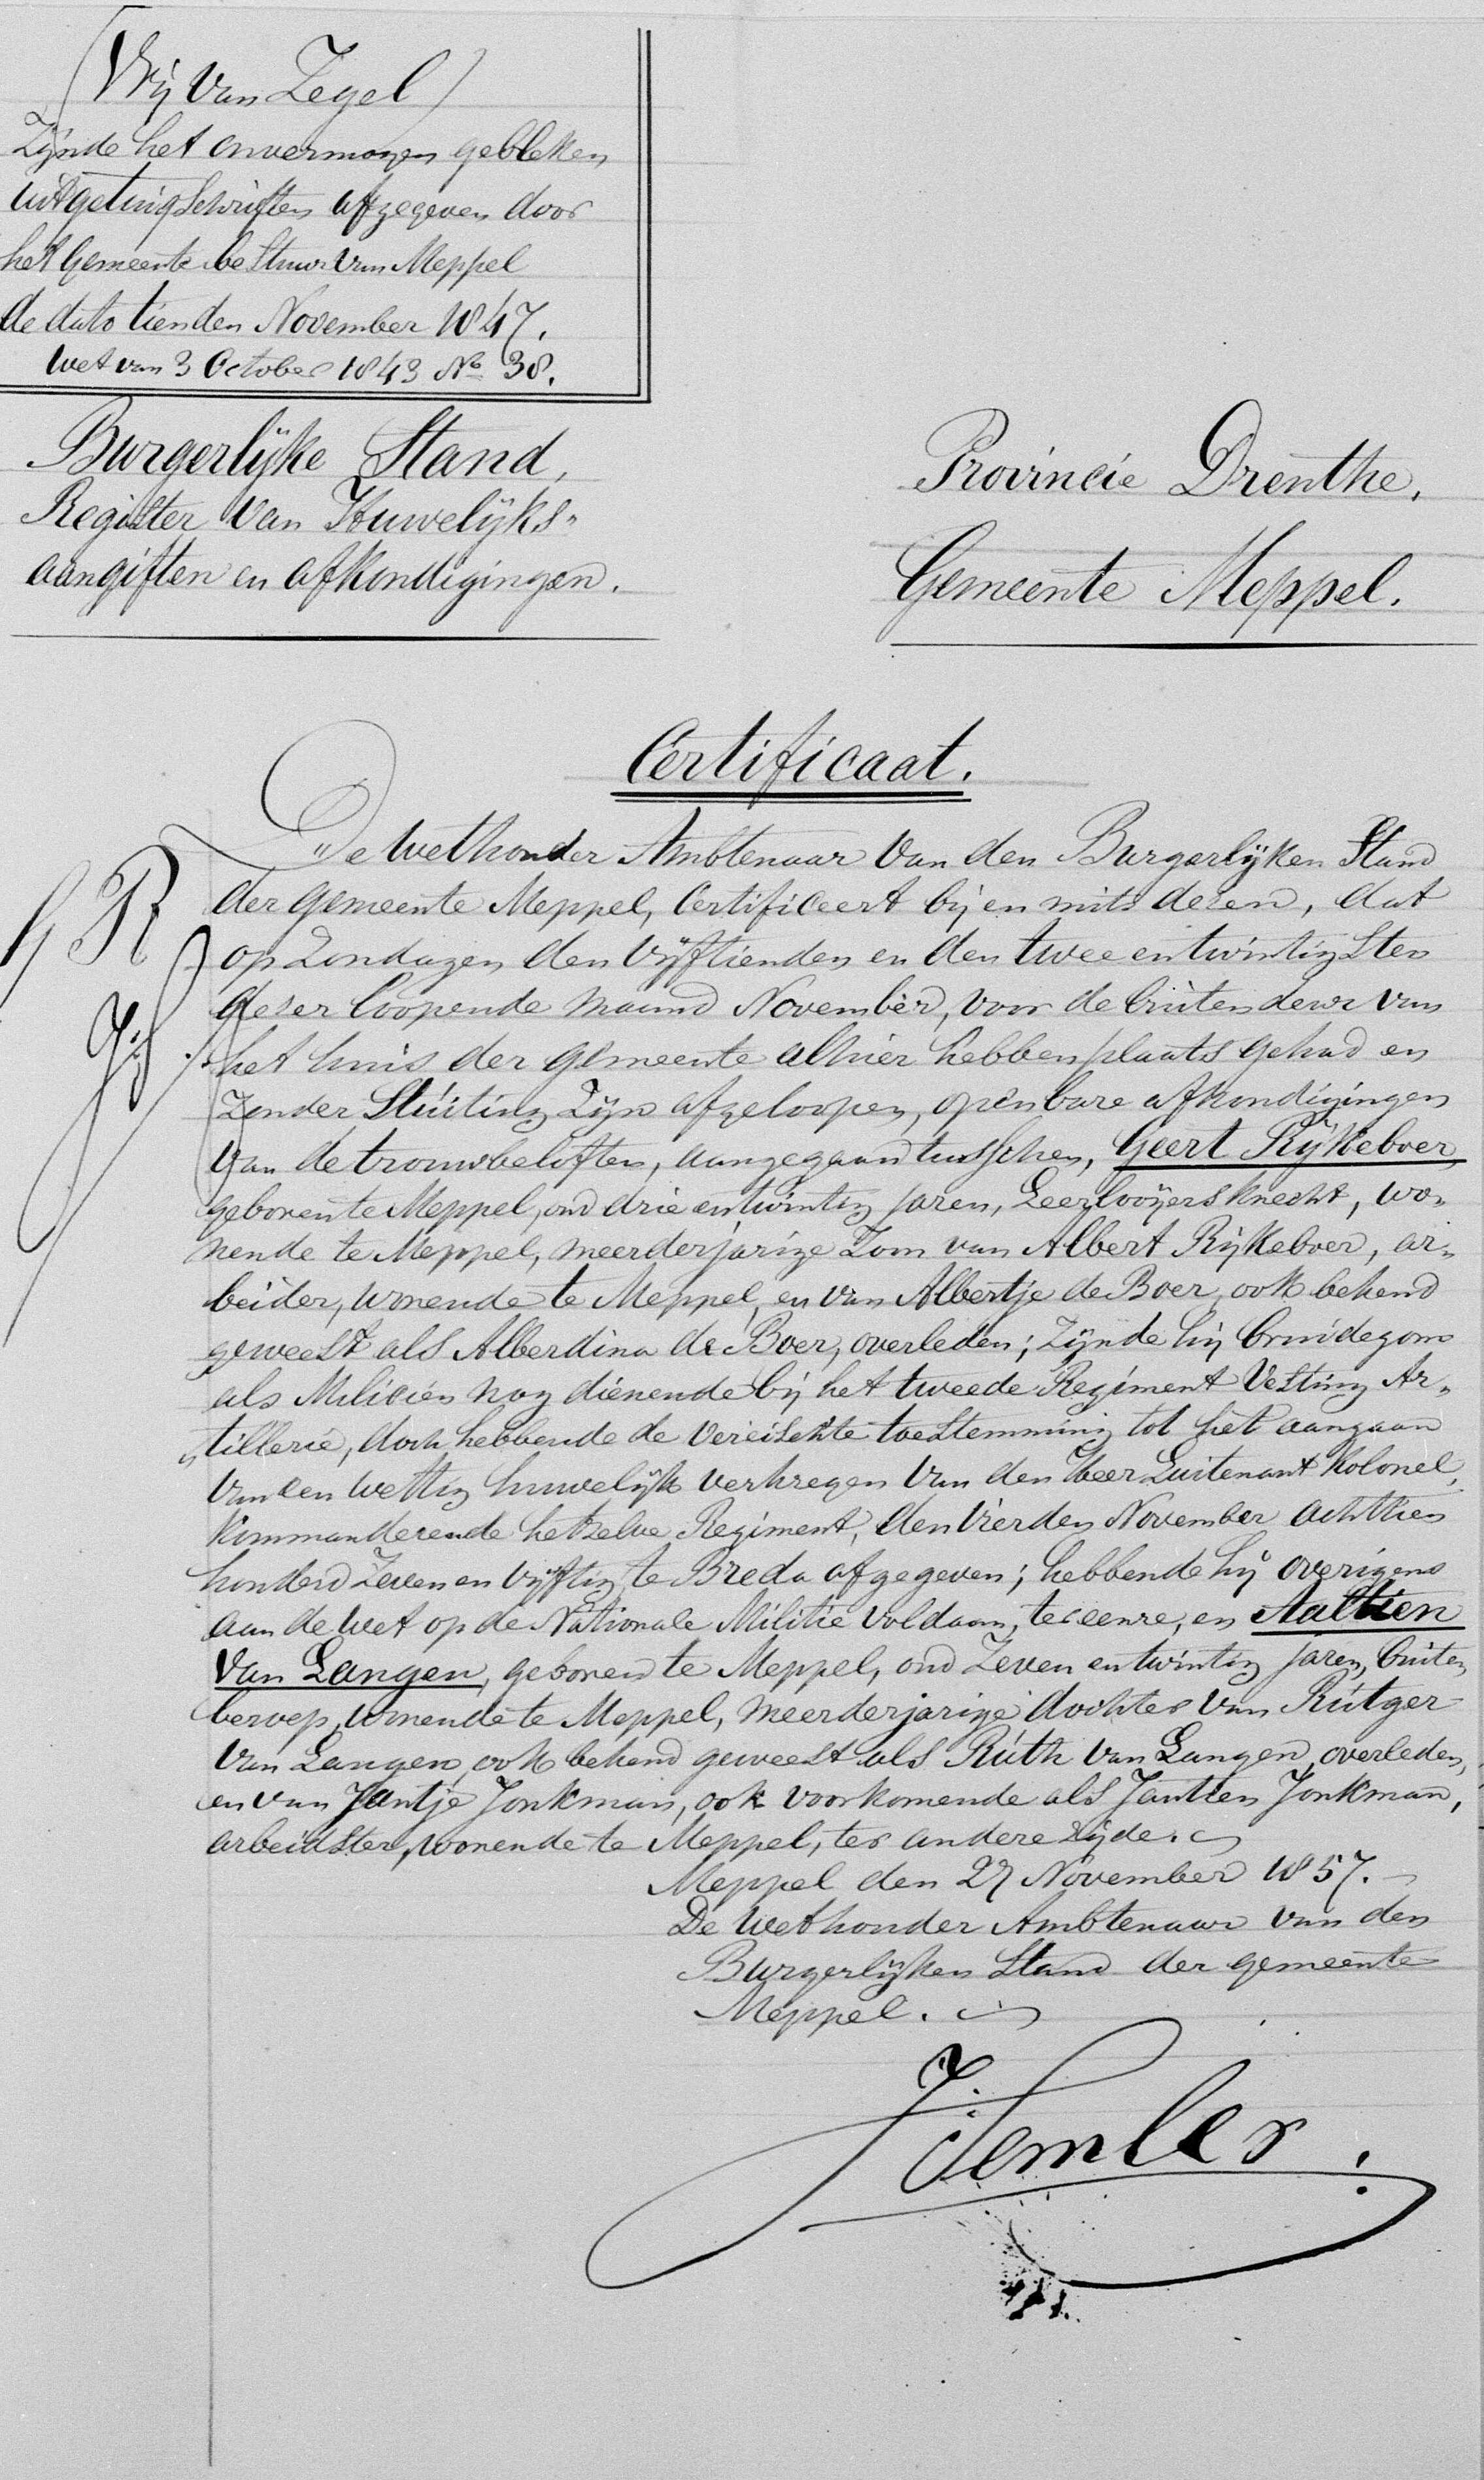 (Vrij van Zegel)
Zijnde het onvermogen gebleken
uit getuigschriften afgegeven door
het Gemeente bestuur van Meppel
de dato tienden November 1847.
Wet van 3 October 1843 No 38.
Burgerlijke Stand,
Register van Huwelijks-
aangiften en afkondigingen.
Provincie Drenthe.
Gemeente Meppel.
Certificaat.
De Wethouder Ambtenaar van den Burgerlijken Stand
der gemeente Meppel, Certificeert bij en mits dezen, dat
op Zondagen den vijftienden en den twee en twintigsten
dezer loopende maand November, voor de buitendeur van
het huis der gemeente alhier hebben plaats gehad en
Zonder Stuiting Zijn afgeloopen, openbare afkondigingen
van de trouwbeloften, aangegaan tusschen, Geert Rijkeboer,
geboren te Meppel, oud drie en twintig jaren, Leerlooijersknecht, wo-
nende te Meppel, meerderjarige Zoon van Albert Rijkeboer, ar-
beider, wonende te Meppel, en van Albertje de Boer, ook bekend
geweest als Alberdina de Boer, overleden; Zijnde hij bruidegom
als Milicien nog dienende bij het tweede Regiment Vesting Ar-
"tillerie, doch hebbende de vereischte toestemming tot het aangaan
van een wettig huwelijk verkregen van den Heer Luitenant Kolonel,
Kommanderende hetzelve Regiment, den Vierden November achttien
honderd Zeven en vijftig te Breda afgegeven; hebbende hij overigens
aan de wet op de Nationale Militie voldaan, ter eenre, en Aaltien
van Langen, geboren te Meppel, oud Zeven en twintig jaren, buiten
beroep, wonende te Meppel, meerderjarige dochter van Rutger
van Langen, ook bekend geweest als Ruth van Langen, overleden,
en van Jantje Jonkman, ook voorkomende als Jantien Jonkman,
arbeidster, wonende te Meppel, ter andere zijde.
Meppel den 27 November 1857.
De Wethouder Ambtenaar van den
Burgerlijken Stand der gemeente
Meppel.